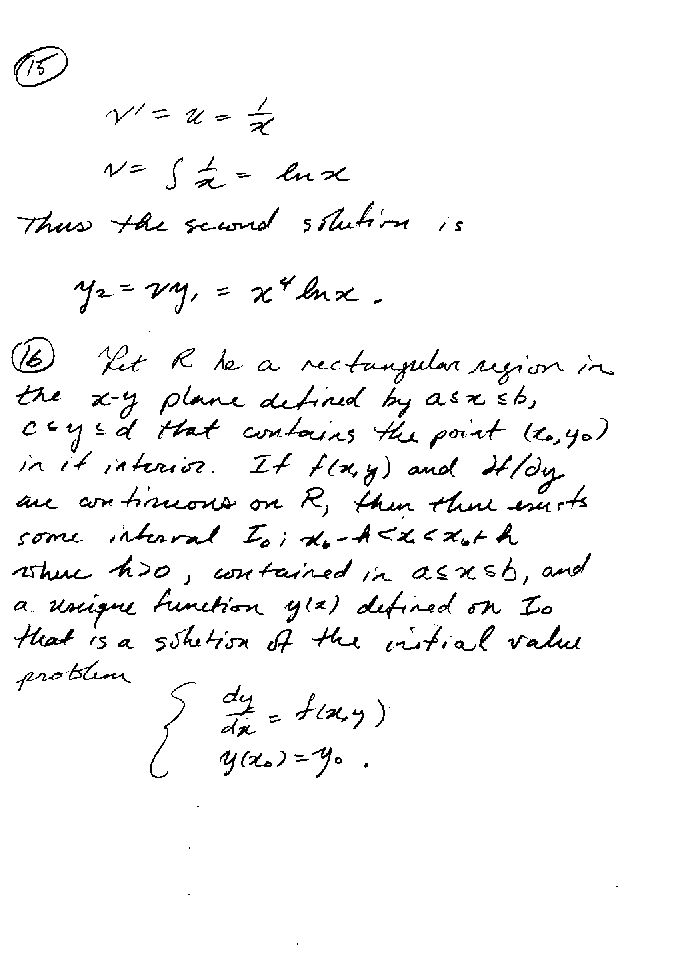 15
v' = u = 1/x
v = ∫ 1/x = ln x
Thus the second solution is
y₂ = vy₁ = x⁴ ln x.
16 Let R be a rectangular region in
the x-y plane defined by a≤x≤b,
c≤y≤d that contains the point (x₀,y₀)
in it interior. If f(x,y) and ∂f/∂y
are continuous on R, then there exists
some interval I₀: x₀-h<x<x₀+h
where h>0, contained in a≤x≤b, and
a unique function y(x) defined on I₀
that is a solution of the initial value
problem
{ dy/dx = f(x,y)
y(x₀)=y₀.